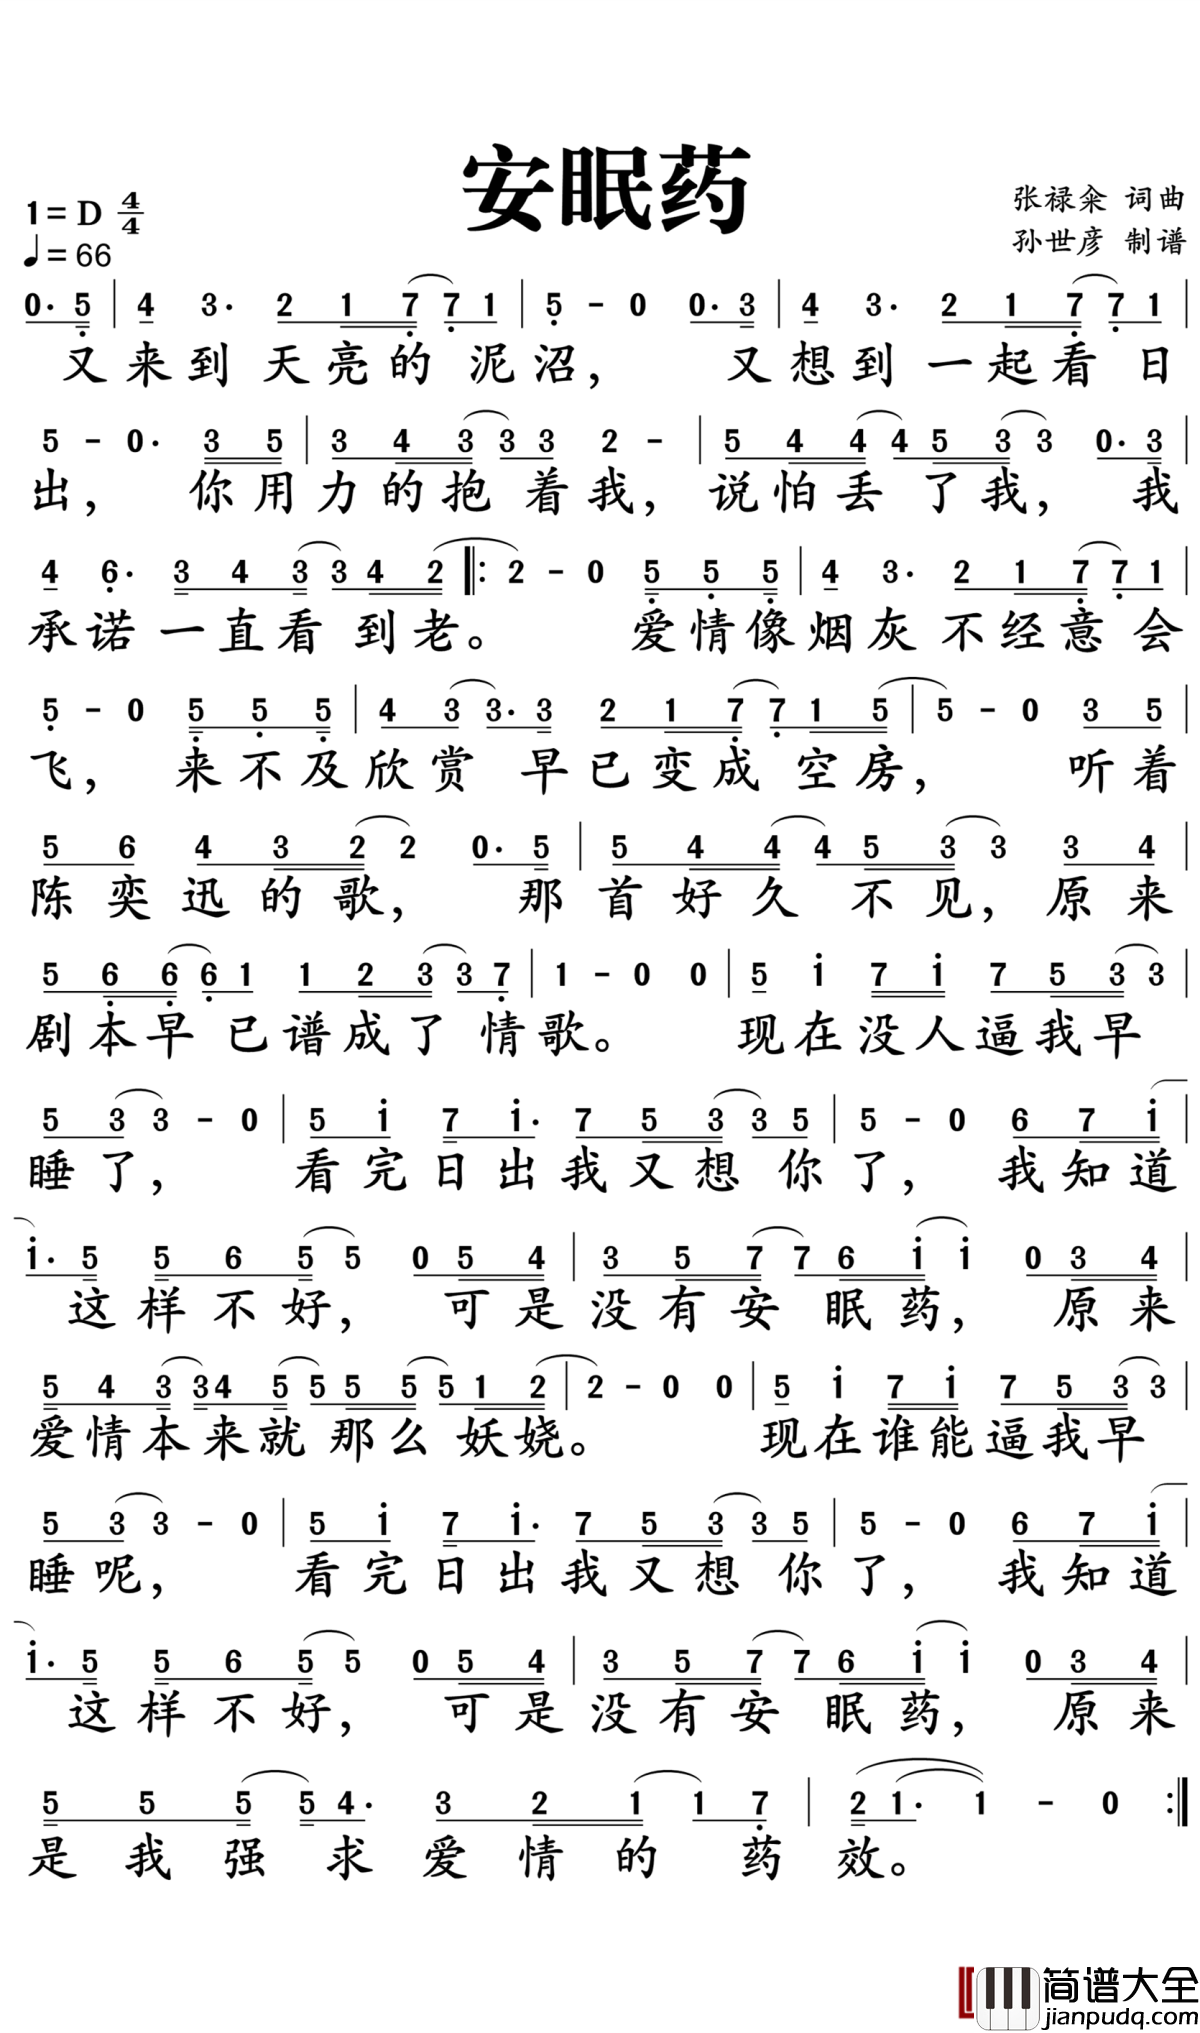 安眠药
1=D 4/4
张禄籴 词曲
♩=66
孙世彦 制谱
0· 5 | 4 3· 2 1 7 7 1 | 5 - 0 0· 3 | 4 3· 2 1 7 7 1 |
又来到天亮的泥沼， 又想到一起看日
5 - 0· 3 5 | 3 4 3 3 3 2 - | 5 4 4 4 5 3 3 0· 3 |
出， 你用力的抱着我，说怕丢了我， 我
4 6· 3 4 3 3 4 2 |: 2 - 0 5 5 5 | 4 3· 2 1 7 7 1 |
承诺一直看到老。 爱情像烟灰不经意会
5 - 0 5 5 5 | 4 3 3· 3 2 1 7 7 1 5 | 5 - 0 3 5 |
飞， 来不及欣赏早已变成空房， 听着
5 6 4 3 2 2 0· 5 | 5 4 4 4 5 3 3 3 4 |
陈奕迅的歌， 那首好久不见，原来
5 6 6 6 1 1 2 3 3 7 | 1 - 0 0 | 5 i 7 i 7 5 3 3 |
剧本早已谱成了情歌。 现在没人逼我早
5 3 3 - 0 | 5 i 7 i· 7 5 3 3 5 | 5 - 0 6 7 i |
睡了， 看完日出我又想你了， 我知道
i· 5 5 6 5 5 0 5 4 | 3 5 7 7 6 i i 0 3 4 |
这样不好， 可是没有安眠药， 原来
5 4 3 3 4 5 5 5 5 5 1 2 | 2 - 0 0 | 5 i 7 i 7 5 3 3 |
爱情本来就那么妖娆。 现在谁能逼我早
5 3 3 - 0 | 5 i 7 i· 7 5 3 3 5 | 5 - 0 6 7 i |
睡呢， 看完日出我又想你了， 我知道
i· 5 5 6 5 5 0 5 4 | 3 5 7 7 6 i i 0 3 4 |
这样不好， 可是没有安眠药， 原来
5 5 5 5 4· 3 2 1 1 7 | 2 1· 1 - 0 :|
是我强求爱情的药效。
简谱大全
jianpudq.com